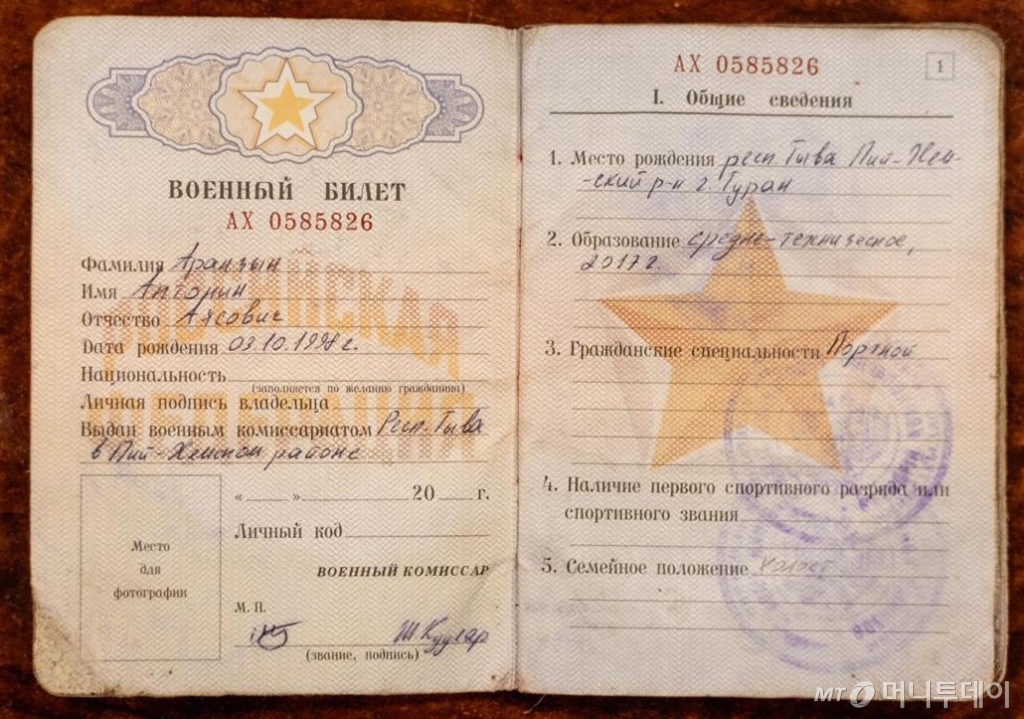 ВОЕННЫЙ БИЛЕТ
АХ 0585826
Фамилия Аранзын
Имя Анторин
Отчество Аясович
Дата рождения 03.10.1998 г.
Национальность
(заполняется по желанию гражданина)
Личная подпись владельца
Выдан военным комиссариатом Респ. Тыва
в Пий-Хемском районе
« » 20 г.
Личный код
Место
для
фотографии
ВОЕННЫЙ КОМИССАР
М. П.
Ш Куулар
(звание, подпись)
АХ 0585826
1
I. Общие сведения
1. Место рождения респ Тыва Пий-Хем-
-ский р-н г. Туран
2. Образование средне-техническое,
2017 г.
3. Гражданские специальности Портной
4. Наличие первого спортивного разряда или
спортивного звания
5. Семейное положение холост
MT 머니투데이